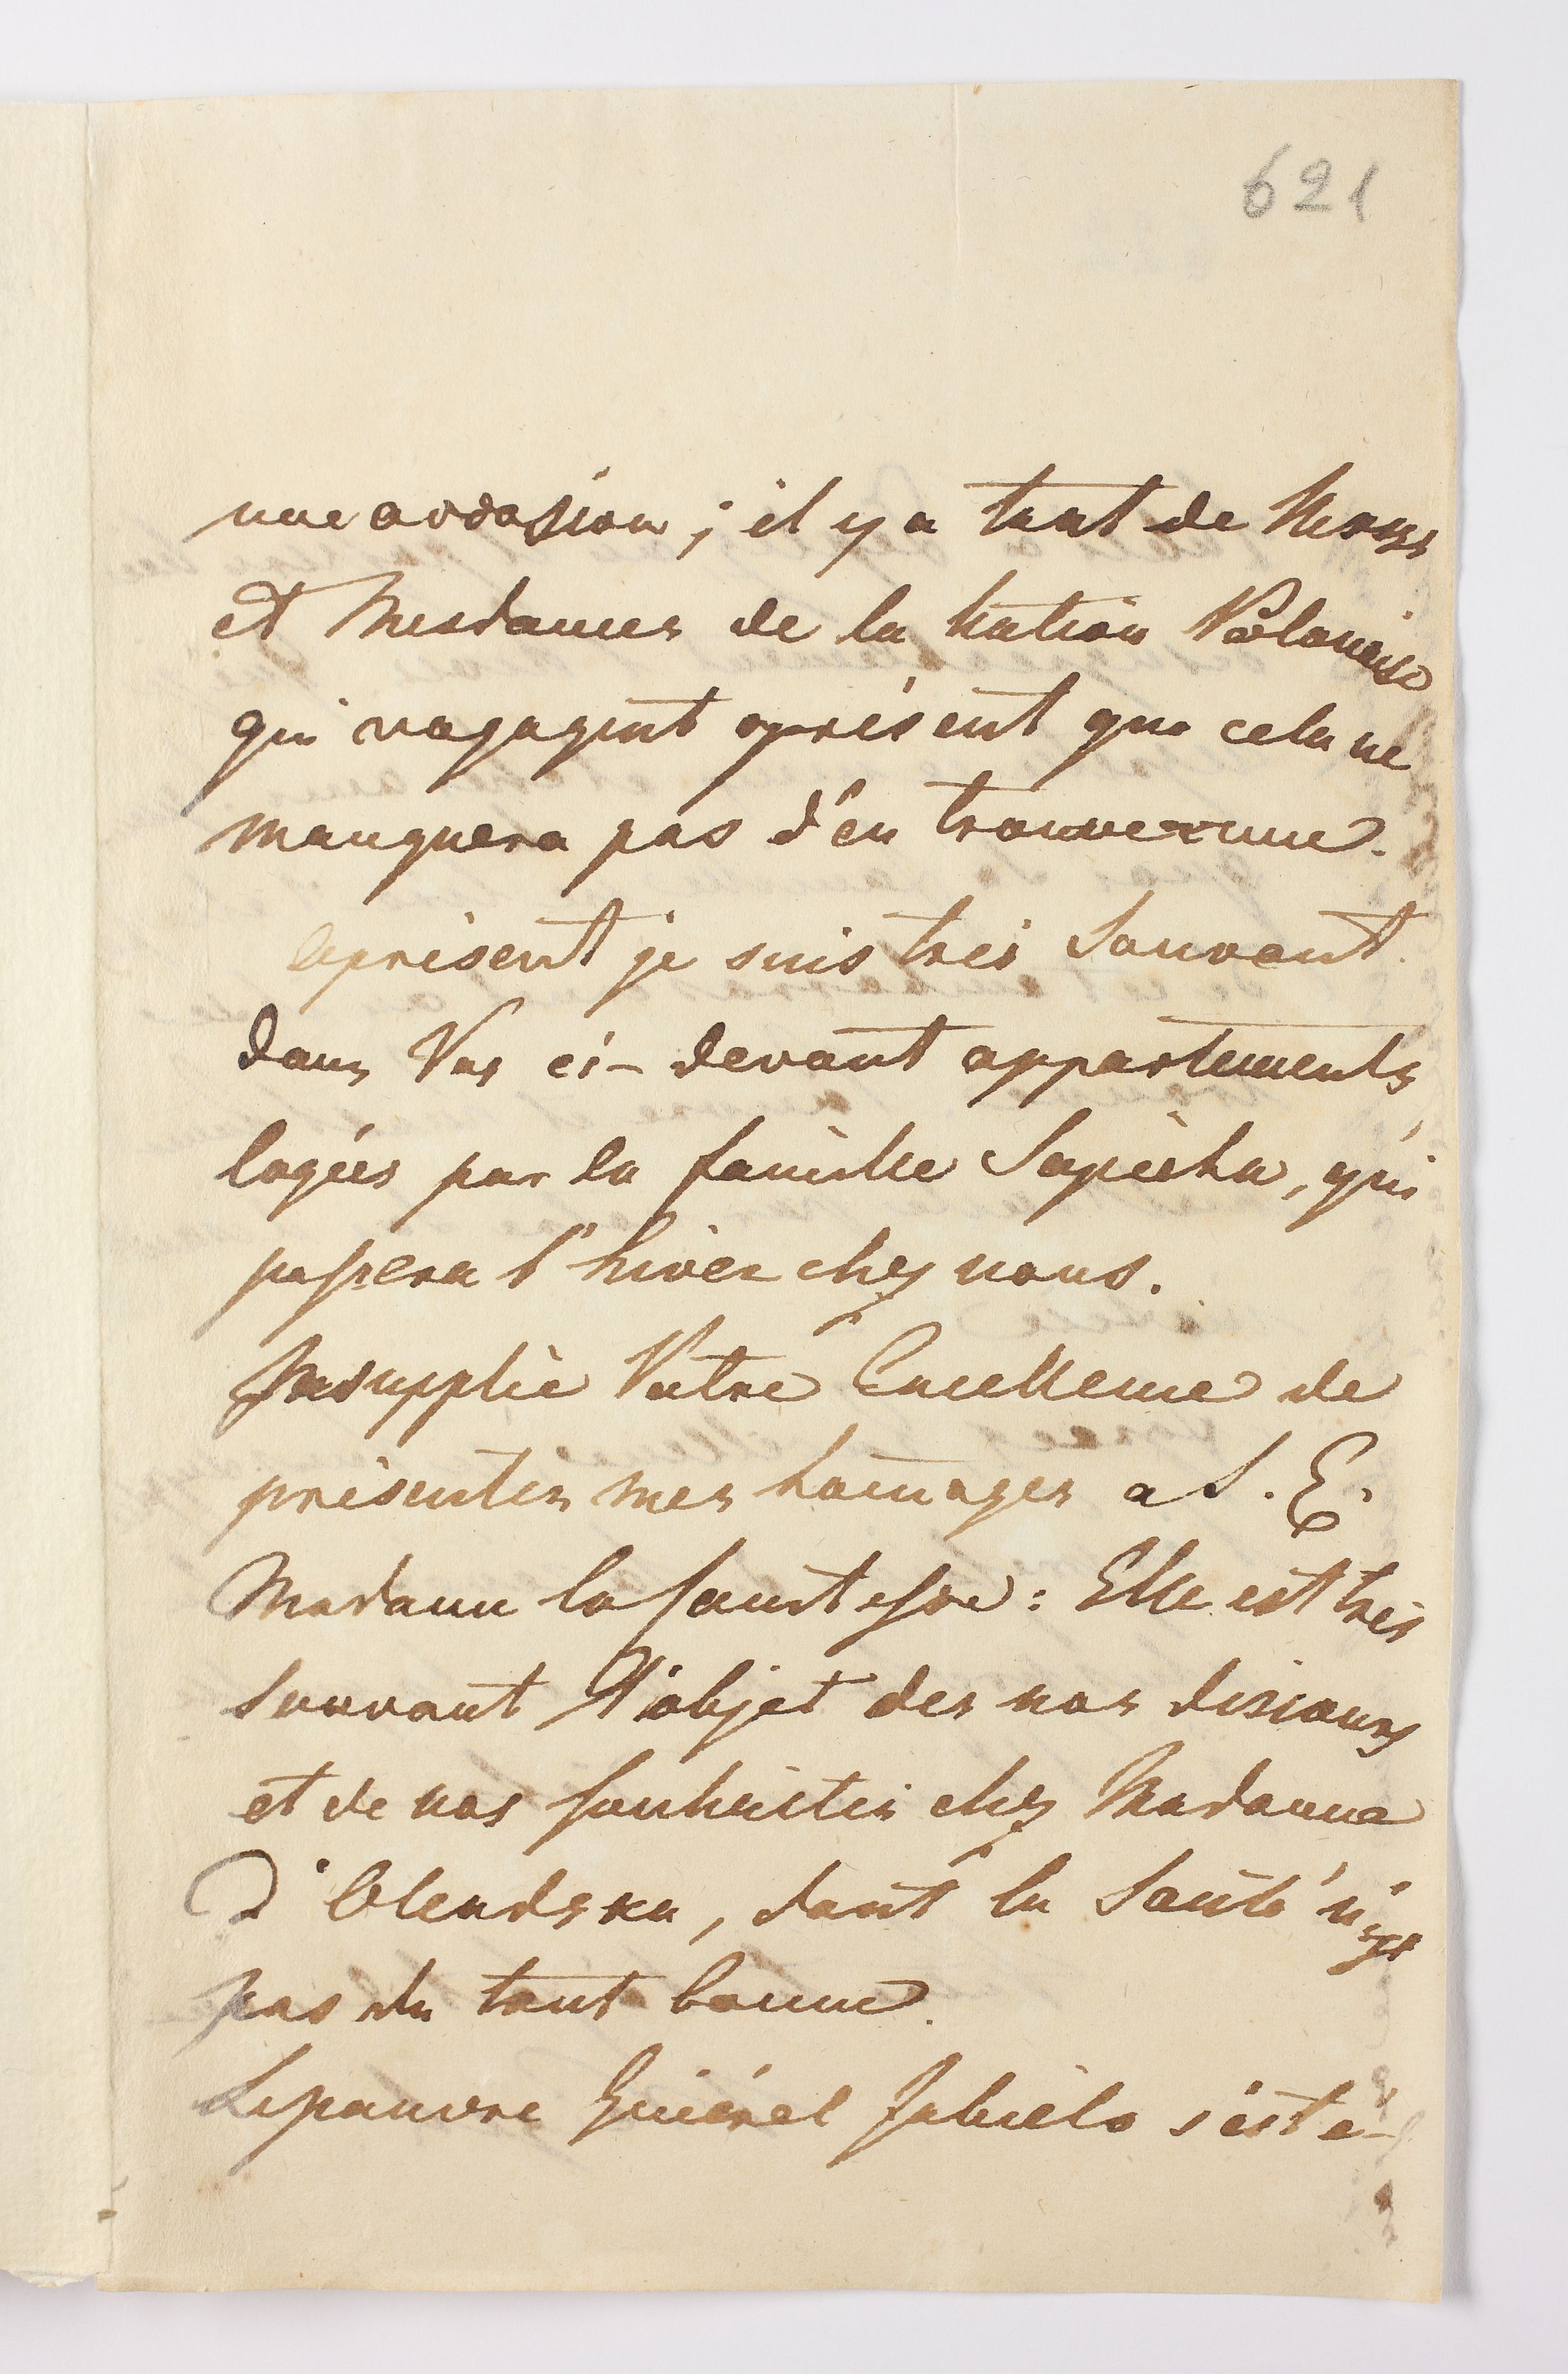 621
une occasion ; il y a tant de Messrs
et Mesdames de la nation Polonaise
qui vagagent aprésent que cela ne
manquera pas d'en trouver une.
aprésent je suis tres Souvent
dans Vos ci-devant appartements,
logées par la famille Sapieha, qui
passera l'hiver chez nous.
Je supplie Votre Excellence de
présenter mes homages a S. E.
Madame la Comtesse : Elle est très
Souvant l'objet des nos discours
et de nos souhaites chez Madame
D'Olendska, dont la Santé n'est
pas du tout bonne.
Le pauvre Général s'est é-